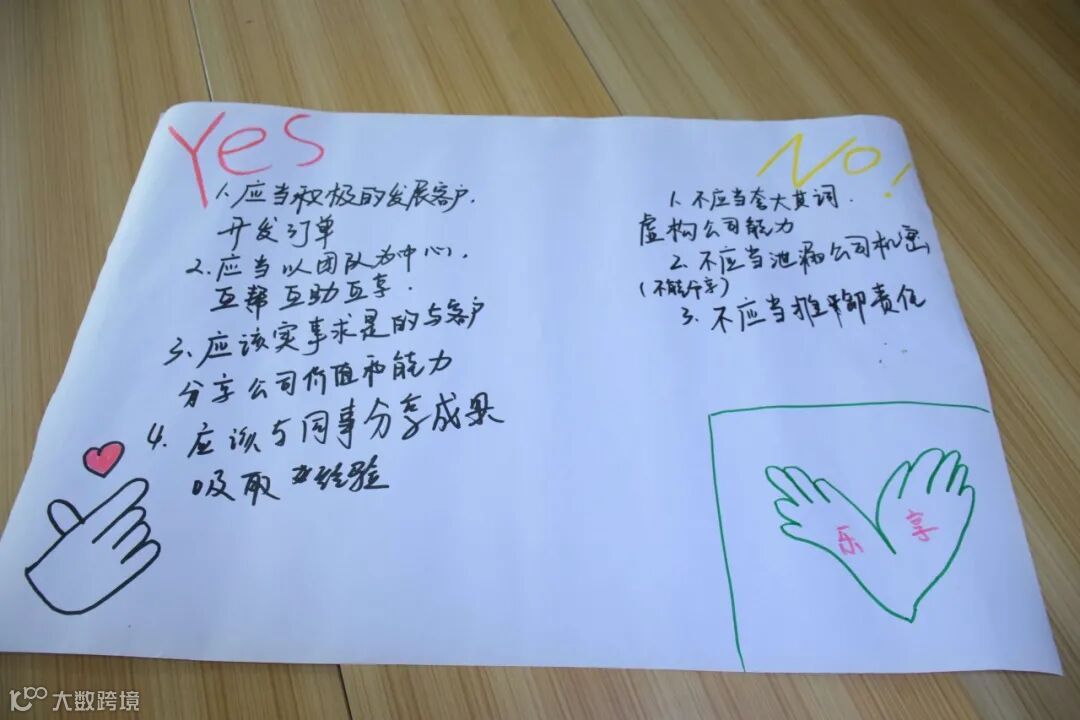 Yes
1. 应当积极的发展客户.
开发订单
2. 应当以团队为中心,
互帮互助互享.
3. 应该实事求是的与客户
分享公司价值和能力
4. 应该与同事分享成果
吸取经验
No!
1. 不应当夸大其词.
虚构公司能力
2. 不应当泄漏公司机密
(不能分享)
3. 不应当推卸责任
乐享
大数跨境